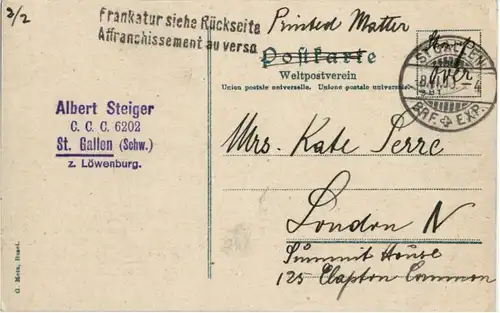 3/2
Frankatur siehe Rückseite
Affranchissement au verso
Printed Matter
Postkarte
Weltpostverein
Union postale universelle. Unione postale universale.
over
ST. GALLEN
BRF. EXP.
Albert Steiger
C. C. C. 6202
St. Gallen (Schw.)
z. Löwenburg.
Mrs. Kate Serre
London N
Summit House
125 Clapton Common
G. Metz, Basel.